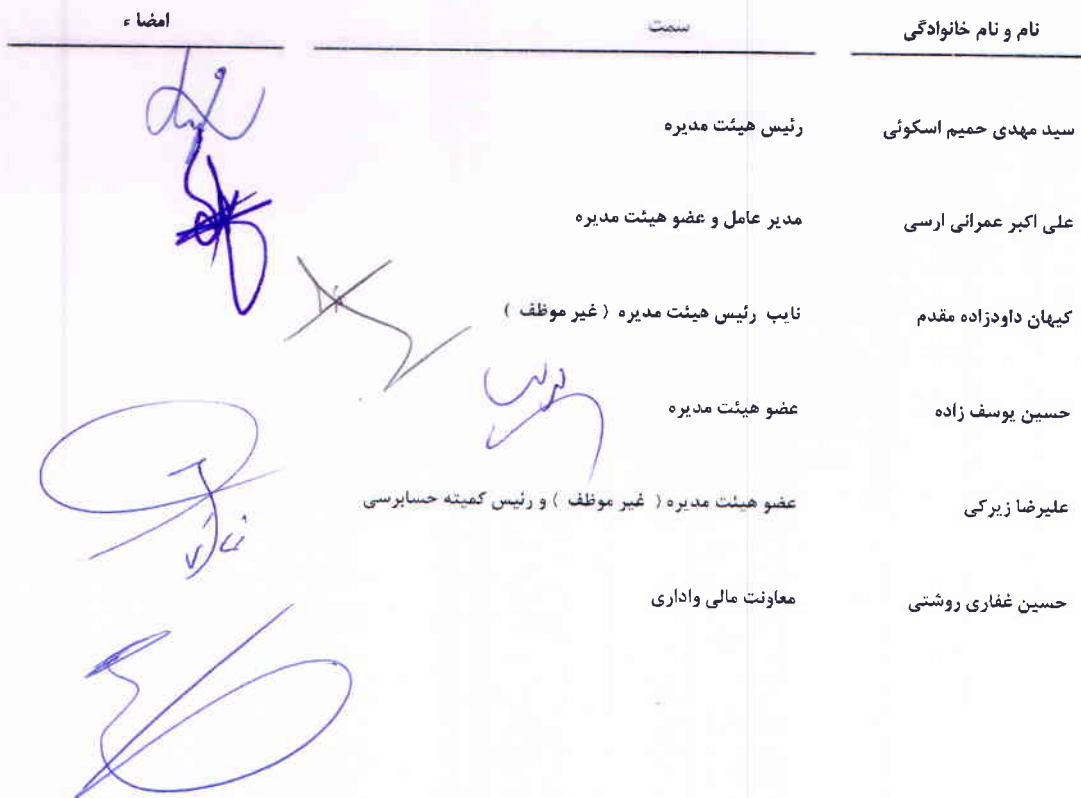 نام و نام خانوادگی سمت امضاء
سید مهدی حمیم اسکوئی رئیس هیئت مدیره
علی اکبر عمرانی ارسی مدیر عامل و عضو هیئت مدیره
کیهان داودزاده مقدم نایب رئیس هیئت مدیره ( غیر موظف )
حسین یوسف زاده عضو هیئت مدیره
علیرضا زیرکی عضو هیئت مدیره ( غیر موظف ) و رئیس کمیته حسابرسی
حسین غفاری روشتی معاونت مالی واداری